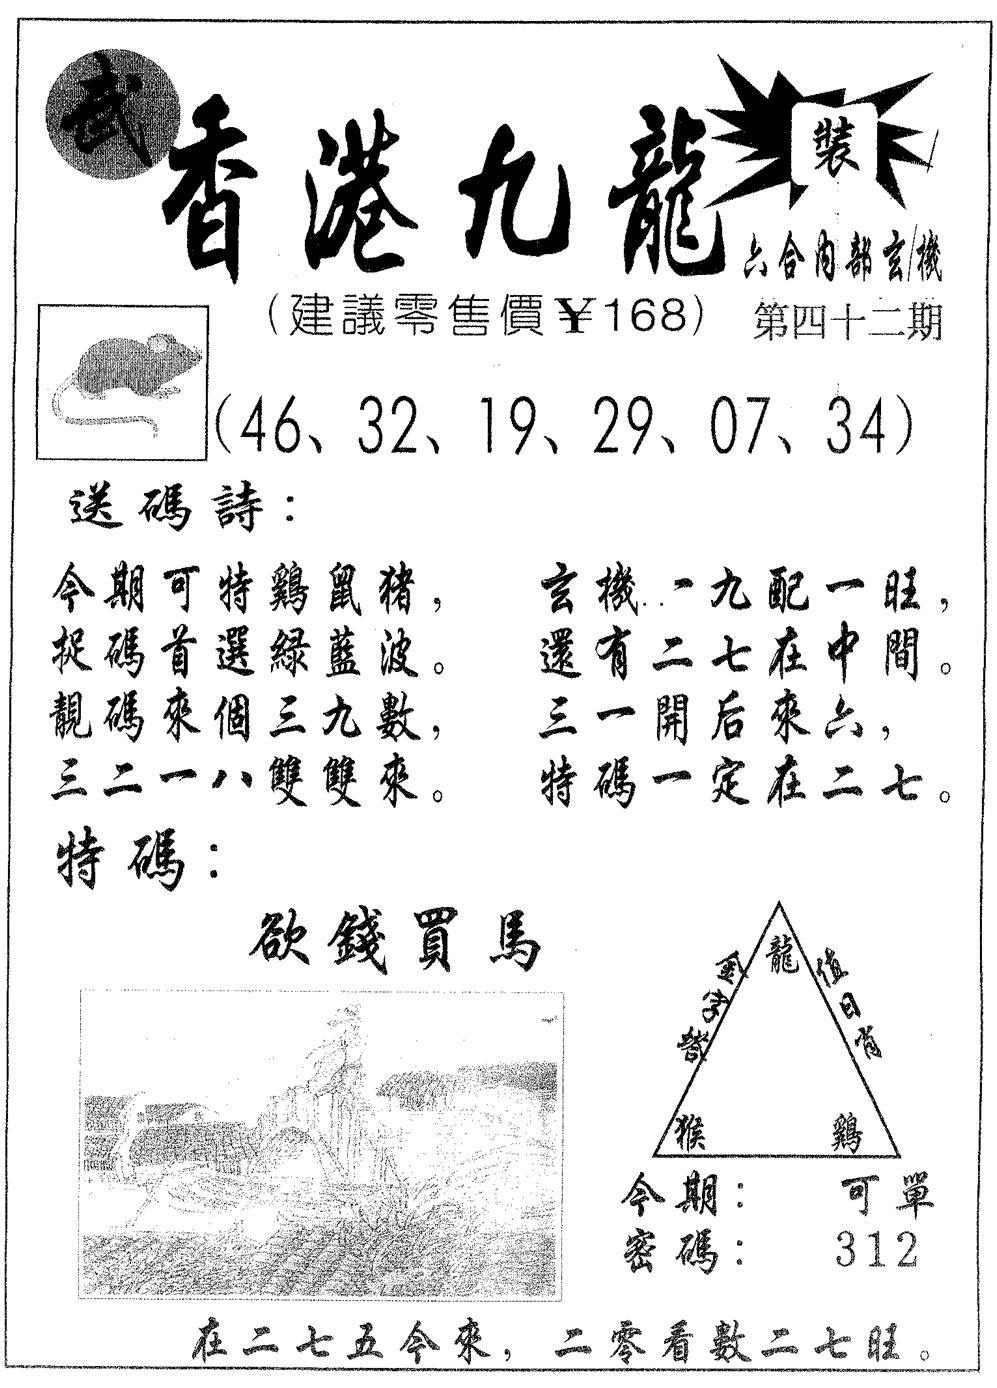 武
香港九龍
裝
六合内部玄機
(建議零售價¥168)
第四十二期
(46、32、19、29、07、34)
送碼詩：
今期可特鷄鼠猪，
捉碼首選緑藍波。
靚碼來個三九數，
三二一八雙雙來。
玄機一九配一旺，
還有二七在中間。
三一開后來六，
特碼一定在二七。
特碼：
欲錢買馬
龍
金字塔
值日肖
猴
鷄
今期：可單
密碼：312
在二七五今來，二零看數二七旺。